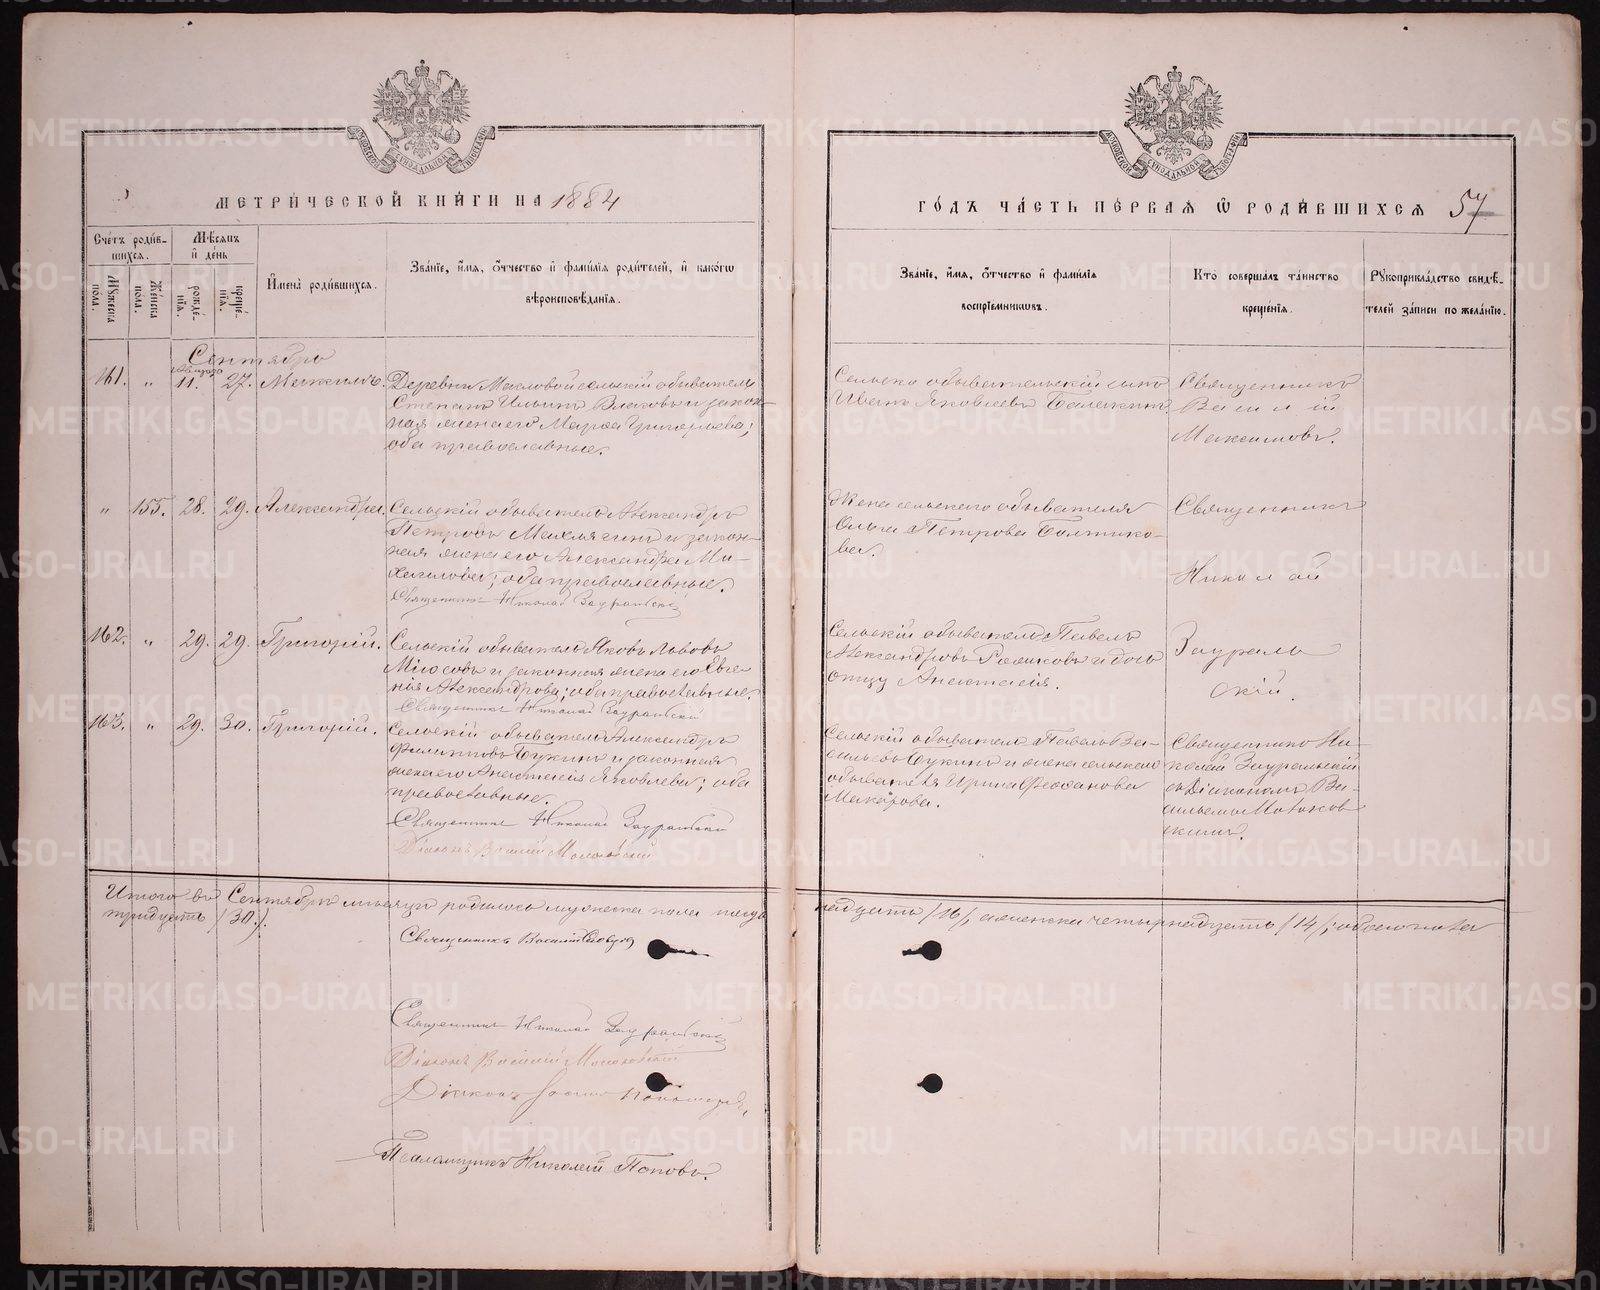 МЕТРИЧЕСКОЙ КНИГИ НА 1884
ГОДЪ ЧАСТЬ ПЕРВАЯ Ѿ РОДИВШИХСѦ 57
Счетъ родив-
шихсѧ.
Мѣсѧцъ
и день
Мужеска пола.
Женска пола.
рожде-
нїѧ.
креще-
нїѧ.
Имена родившихсѧ.
Званїе, имѧ, ѻтчество и фамилїѧ родителей, и какогѡ
вѣроисповѣданїѧ.
Званїе, имѧ, ѻтчество и фамилїѧ
воспрїемникѡвъ.
Кто совершалъ таинство
крещенїѧ.
Рукоприкладство свидѣ-
телей записи по желанїю.
Сентябрь
Августа
161. " 11. 27. Михаилъ. Деревни Масловой сельскій обыватель
Степанъ Ильинъ Власовъ и закон-
ная жена его Марѳа Григорьева;
оба православные.
Сельско обывательскій сынъ
Иванъ Яковлевъ Балакинъ.
Священникъ
Василій
Максимовъ.
" 155. 28. 29. Александра. Сельскій обыватель Александръ
Петровъ и закон-
ная жена его Александра Ми-
хаилова; оба православные.
Священникъ Николай Зауральскій
Жена сельскаго обывателя
Ольга Петрова
Священникъ
Николай
Зураль
скій.
162. " 29. 29. Григорій. Сельскій обыватель Яковъ Львовъ
и законная жена его Евге-
нія Александрова; оба православные.
Священникъ Николай Зауральскій
Сельскій обыватель Павелъ
Александровъ и дочь
отцу Анастасія.
163. " 29. 30. Григорій. Сельскій обыватель Александръ
Филипповъ Букинъ и законная
жена его Анастасія Яковлева; оба
православные.
Священникъ Николай Зауральскій
Діаконъ Василій
Сельскій обыватель Павелъ Ва-
сильевъ Букинъ и жена сельскаго
обывателя Ирина Феофанова
Макарова.
Священникъ Ни-
колай Зауральскій
съ Діакономъ Ва-
сильемъ
Итого въ Сентябрѣ мѣсяцѣ родилось мужеска пола шестнадцать /16/, а женска четырнадцать /14/; обоего пола
тридцать /30/.
Священникъ Василій
Священникъ Николай Зауральскій
Діаконъ Василій
Діаконъ
Псаломщикъ Николай Поповъ.
METRIKI.GASO-URAL.RU